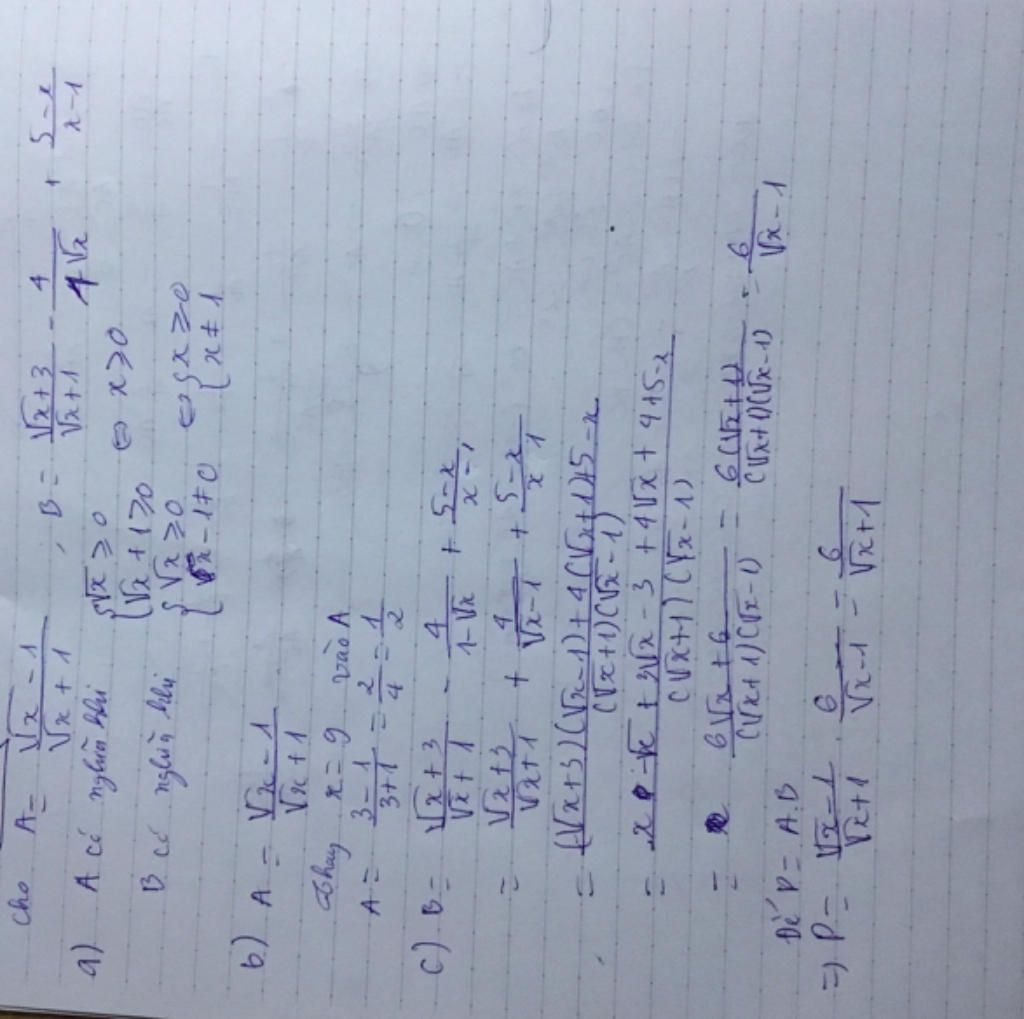 Cho A = (√x - 1)/(√x + 1) , B = (√x+3)/(√x+1) - 4/(1√x) + (5-x)/(x-1)
a) A có nghĩa khi {√x ≥ 0 {√x + 1 ≥ 0 ⇔ x ≥ 0
B có nghĩa khi {√x ≥ 0 {√x - 1 ≠ 0 ⇔ {x ≥ 0 {x ≠ 1
b) A = (√x - 1)/(√x + 1)
thay x = 9 vào A
A = (3-1)/(3+1) = 2/4 = 1/2
c) B = (√x+3)/(√x+1) - 4/(1-√x) + (5-x)/(x-1)
= (√x+3)/(√x+1) + 4/(√x-1) + (5-x)/(x 1)
= ((√x+3)(√x-1)+4(√x+1)+5-x)/((√x+1)(√x-1))
= (x - √x + 3√x - 3 + 4√x + 4+5-x)/((√x+1)(√x-1))
= (6√x+6)/((√x+1)(√x-1)) = (6(√x+1))/((√x+1)(√x-1)) = 6/(√x-1)
Để P = A.B
=) P = (√x-1)/(√x+1) . 6/(√x-1) = 6/(√x+1)